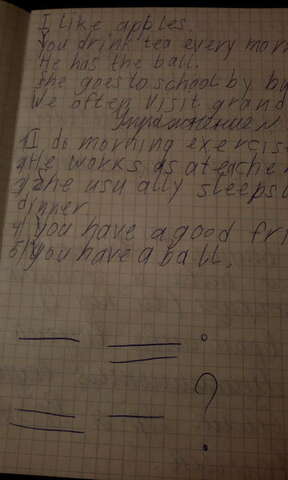 I like apples.
You drink tea every mor
He has the ball.
She goes to school by bu
We often visit grand
Упражнение N
1 I do morning exersis
2) He works as a teache
3) She usually sleeps
dinner
4) you have a good fri
5) you have a ball.
.
?
.